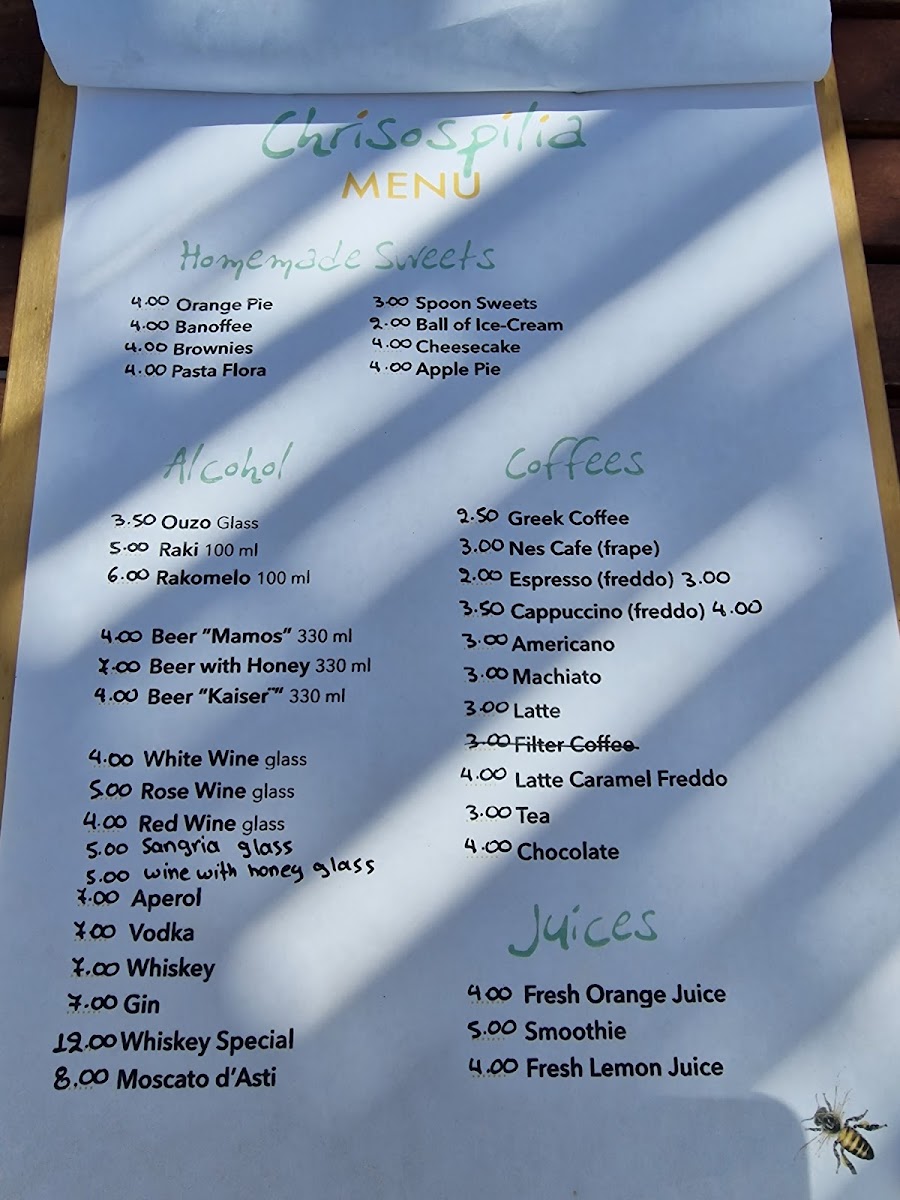 Chrisospilia
MENU
Homemade Sweets
4.00 Orange Pie
4.00 Banoffee
4.00 Brownies
4.00 Pasta Flora
3.00 Spoon Sweets
2.00 Ball of Ice-Cream
4.00 Cheesecake
4.00 Apple Pie
Alcohol
3.50 Ouzo Glass
5.00 Raki 100 ml
6.00 Rakomelo 100 ml
4.00 Beer "Mamos" 330 ml
7.00 Beer with Honey 330 ml
4.00 Beer "Kaiser"" 330 ml
4.00 White Wine glass
5.00 Rose Wine glass
4.00 Red Wine glass
5.00 Sangria glass
5.00 wine with honey glass
7.00 Aperol
7.00 Vodka
7.00 Whiskey
7.00 Gin
12.00 Whiskey Special
8.00 Moscato d'Asti
Coffees
2.50 Greek Coffee
3.00 Nes Cafe (frape)
2.00 Espresso (freddo) 3.00
3.50 Cappuccino (freddo) 4.00
3.00 Americano
3.00 Machiato
3.00 Latte
3.00 Filter Coffee
4.00 Latte Caramel Freddo
3.00 Tea
4.00 Chocolate
Juices
4.00 Fresh Orange Juice
5.00 Smoothie
4.00 Fresh Lemon Juice